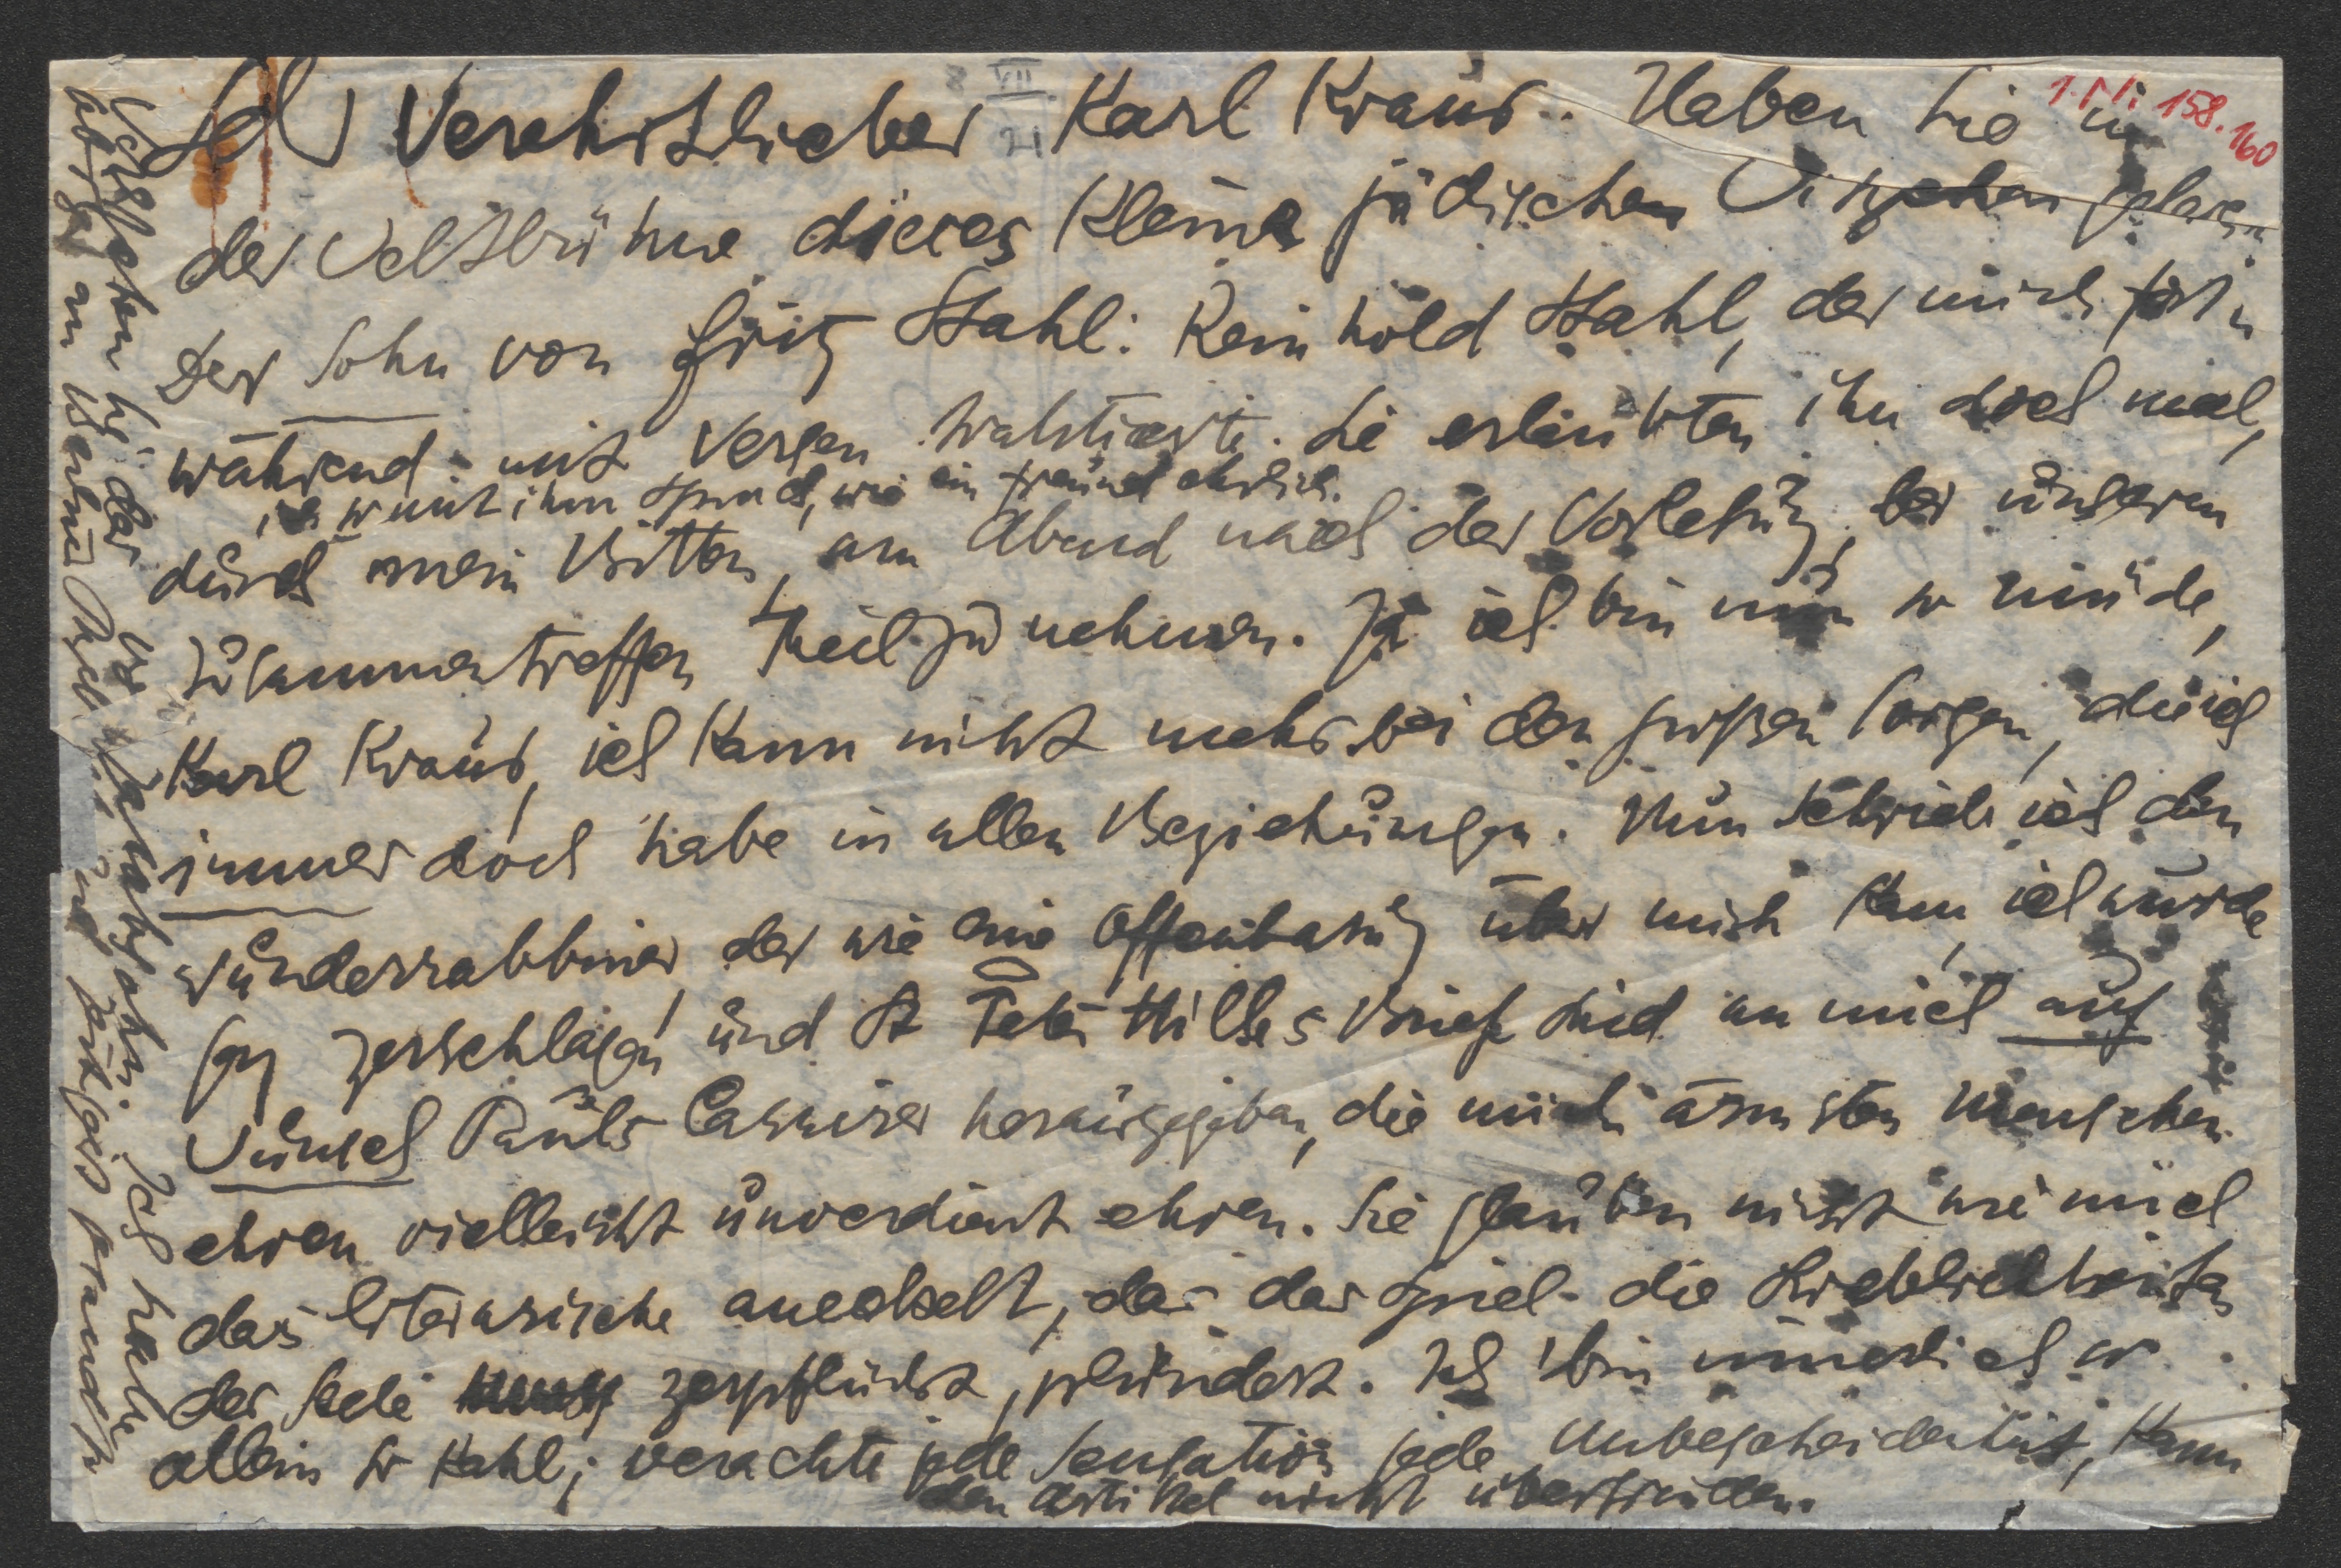 Sehr Verehrtlieber Karl Kraus.. Haben Sie in
der Weltbühne dieses kleine jüdischen gelesen
Der Sohn von Fritz Stahl: Reinhold Stahl, der mich fort
während mit Versen traktierte. Sie erlaubten ihn doch mal,
ich mit ihm sprach, wie ein Freund ehrlich.
durch mein Bitten, am Abend nach der Vorlesung, bei unserem
Zusammentreffen Theil zu nehmen. Ja ich bin nun so müde,
Karl Kraus, ich kann nicht mehr bei den großen Sorgen, die ich
immer doch habe in allen Beziehungen. Nun schrieb ich den
Wunderrabbiner, der wie eine Offenbarung über mich kam, ich wurde
ganz zerschlagen und St Peter Hilles Briefe sind an mich auf
Wunsch Pauls Cassirer herausgegeben, die mich ärmsten Menschen
ehren vielleicht unverdient ehren. Sie glauben nicht wie mich
das literarische anekelt, das der Spiel- die Lieblichkeiten
der Seele zerpflückt, plündert. Ich bin innerlich so
allein so kahl; verachte jede Sensation jede Unbescheidenheit, kann
den Artikel nicht überwinden.
Ich habe
an
und
1.N. 158.160
8
VII
21